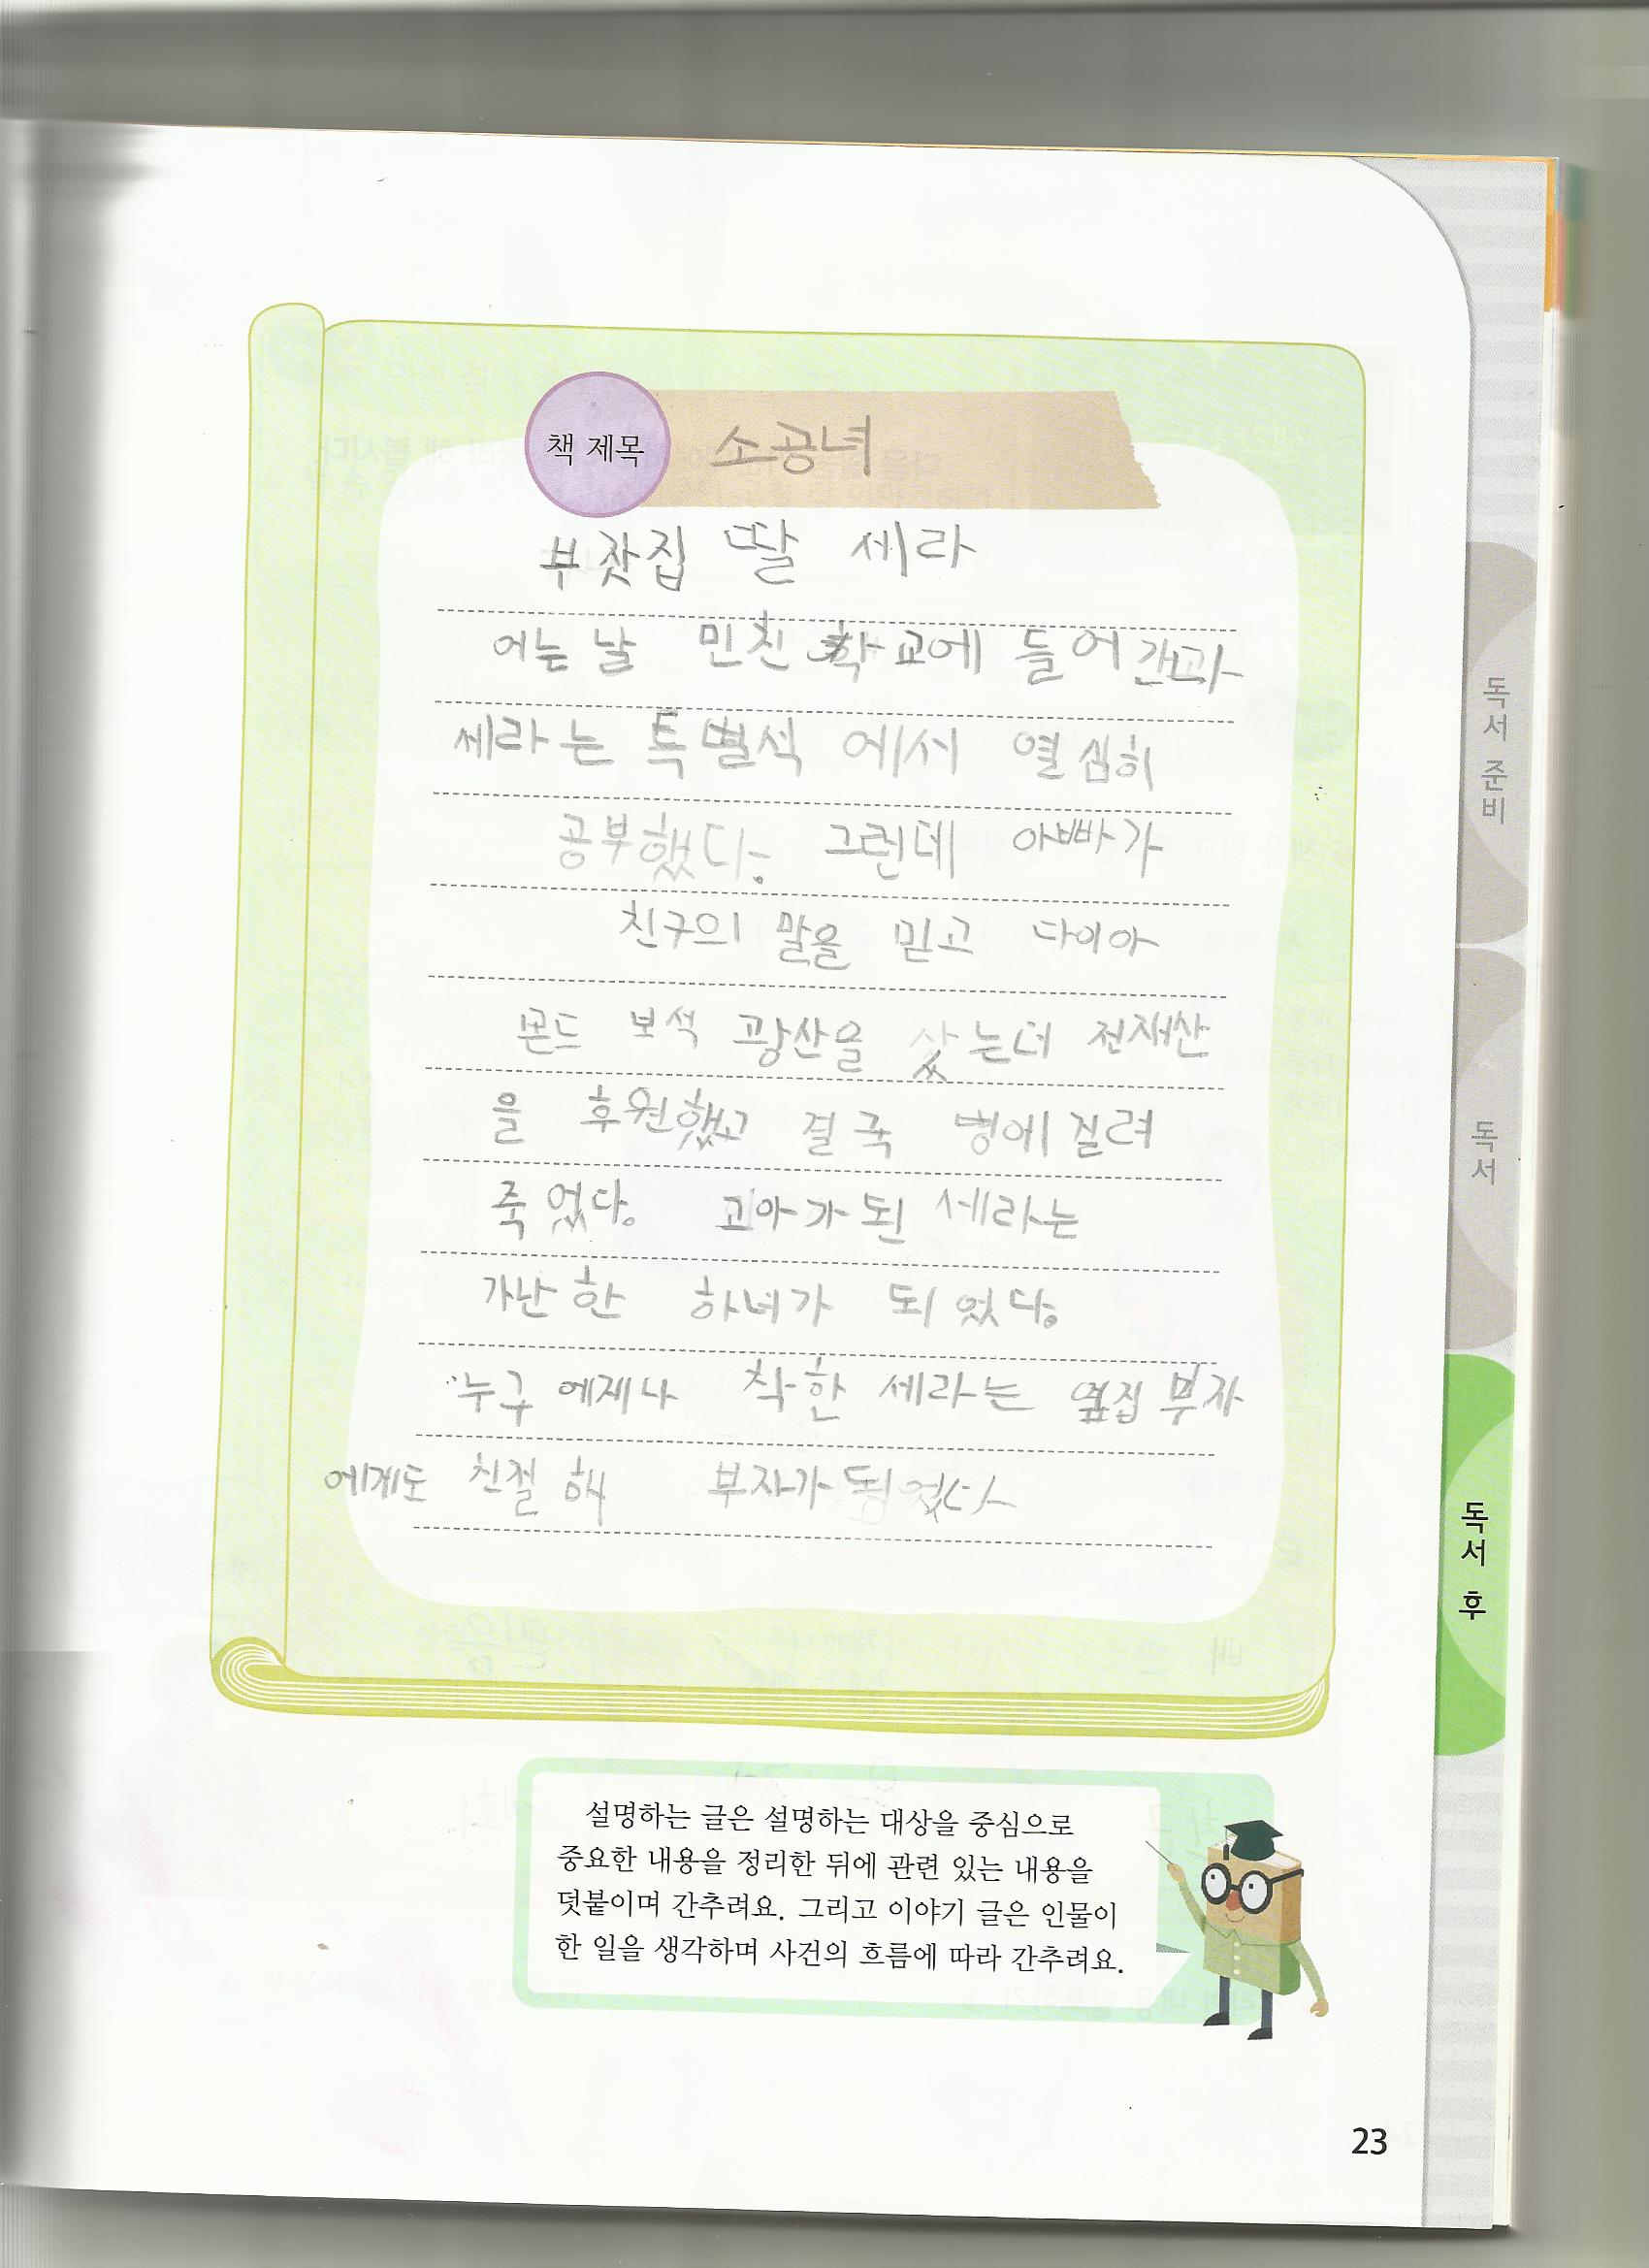 책 제목 소공녀
부잣집 딸 세라
어는날 민친 학교에 들어간과
세라는 특별석 에서 열심히
공부했다. 그런데 아빠가
친구의 말을 믿고 다이아
몬드 보석 광산을 샀는데 전재산
을 후원했고 결국 병에 질려
죽었다. 고아가 된 세라는
가난한 하녀가 되었다.
누구 에제나 착한 세라는 옆집 부자
에게도 친절해 부자가 되었다
설명하는 글은 설명하는 대상을 중심으로
중요한 내용을 정리한 뒤에 관련 있는 내용을
덧붙이며 간추려요. 그리고 이야기 글은 인물이
한 일을 생각하며 사건의 흐름에 따라 간추려요.
독서 준비
독서
독서 후
23